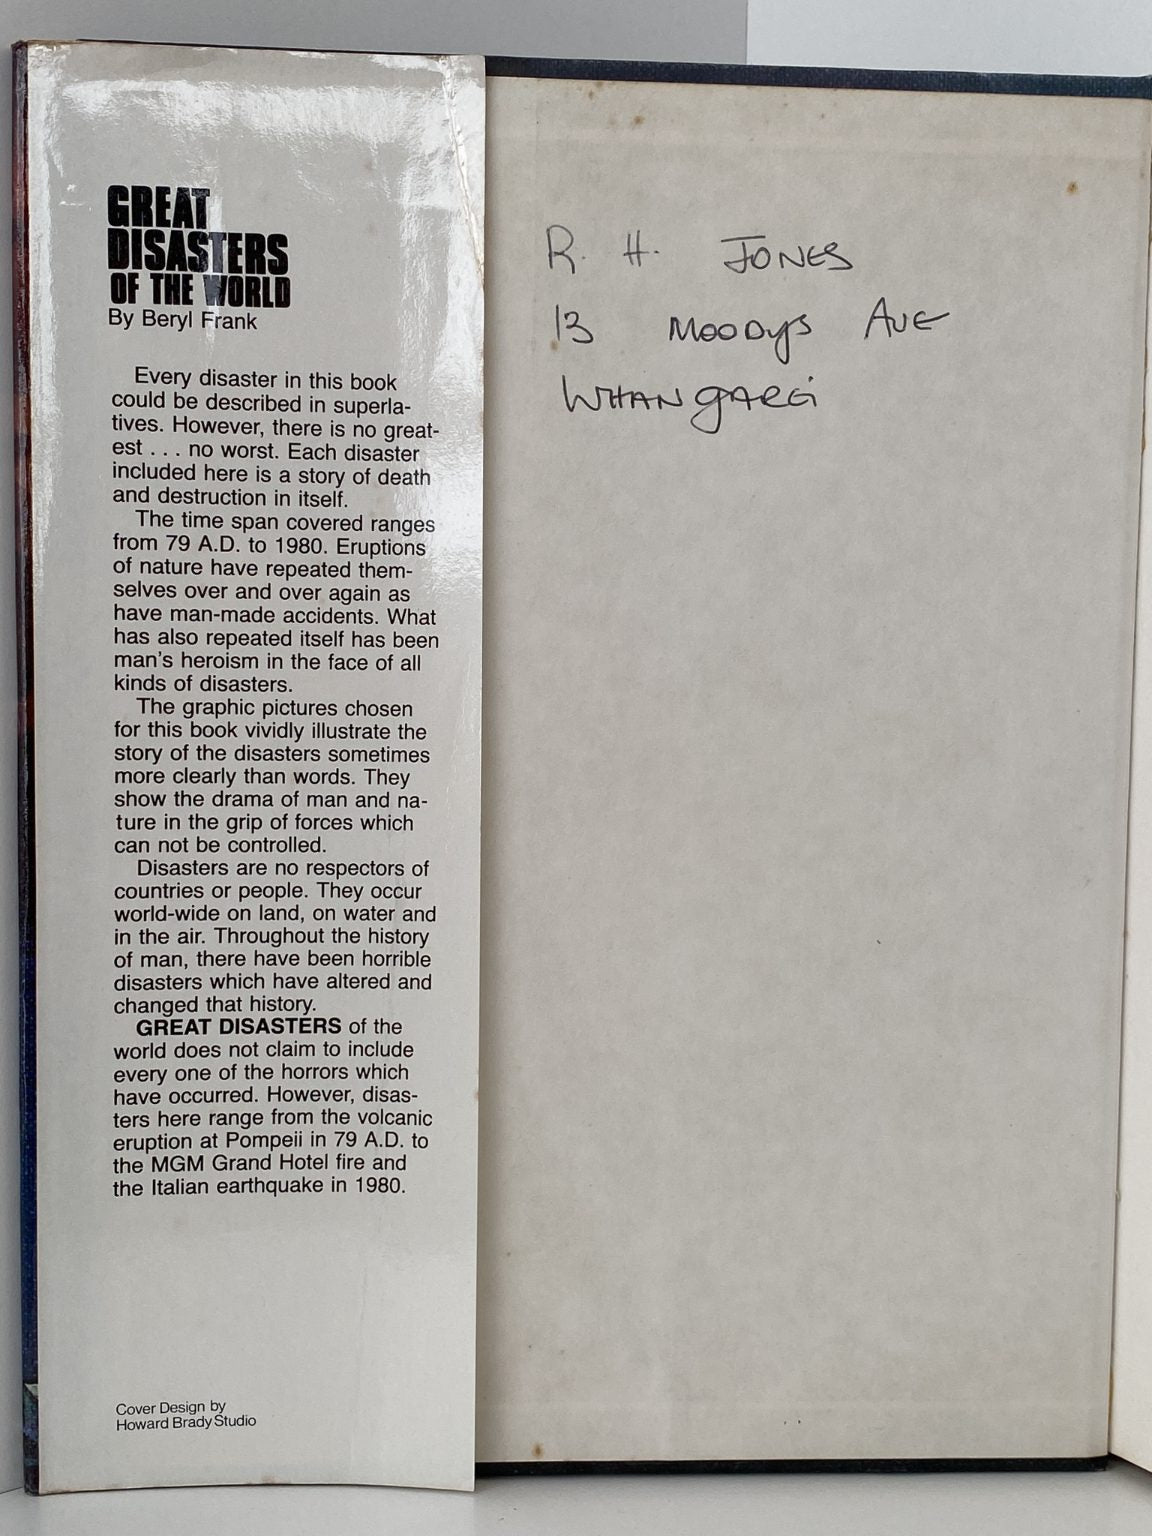 GREAT
DISASTERS
OF THE WORLD
By Beryl Frank
Every disaster in this book
could be described in superla-
tives. However, there is no great-
est . . . no worst. Each disaster
included here is a story of death
and destruction in itself.
The time span covered ranges
from 79 A.D. to 1980. Eruptions
of nature have repeated them-
selves over and over again as
have man-made accidents. What
has also repeated itself has been
man's heroism in the face of all
kinds of disasters.
The graphic pictures chosen
for this book vividly illustrate the
story of the disasters sometimes
more clearly than words. They
show the drama of man and na-
ture in the grip of forces which
can not be controlled.
Disasters are no respectors of
countries or people. They occur
world-wide on land, on water and
in the air. Throughout the history
of man, there have been horrible
disasters which have altered and
changed that history.
GREAT DISASTERS of the
world does not claim to include
every one of the horrors which
have occurred. However, disas-
ters here range from the volcanic
eruption at Pompeii in 79 A.D. to
the MGM Grand Hotel fire and
the Italian earthquake in 1980.
Cover Design by
Howard Brady Studio
R. H. JONES
13 MOODYS AVE
WHANGAREi